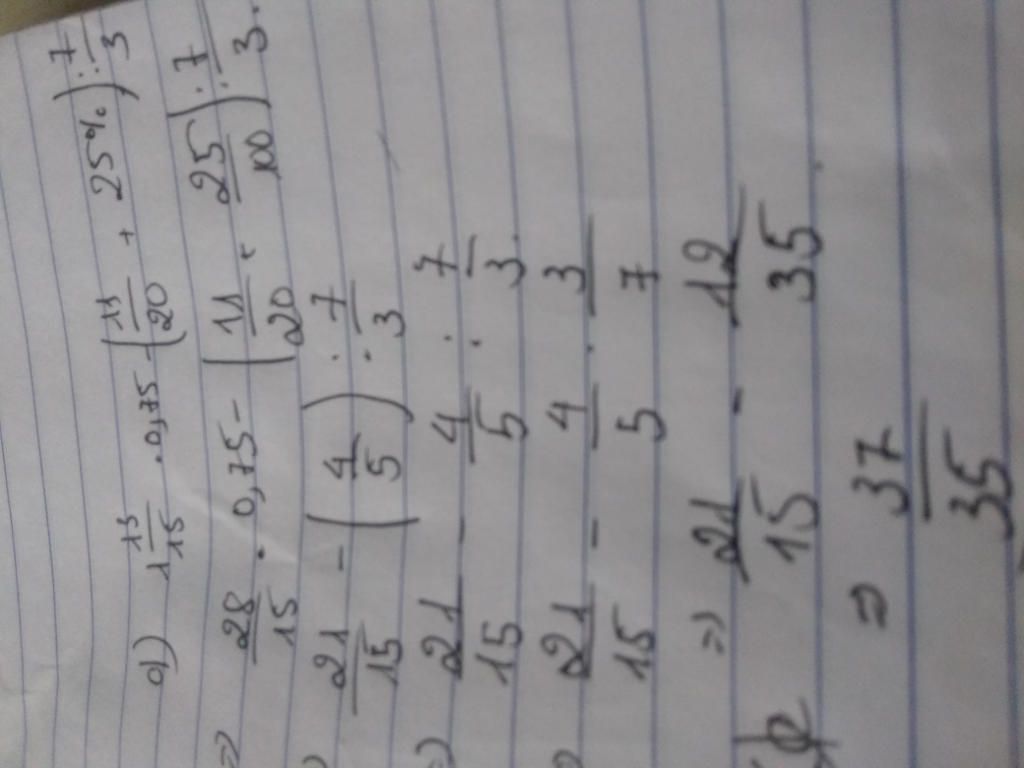 a) 1 13/15 . 0,75 - (11/20 + 25%) : 7/3
=> 28/15 . 0,75 - (11/20 + 25/100) : 7/3.
21/15 - (4/5) : 7/3
=> 21/15 - 4/5 : 7/3.
=> 21/15 - 4/5 . 3/7
=> 21/15 - 12/35.
=> 37/35